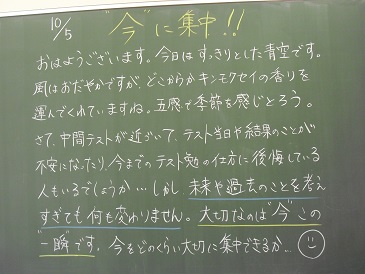 10/5 "今"に集中!!
おはようございます。今日はすっきりとした青空です。
風はおだやかですが、どこからかキンモクセイの香りを
運んでくれていますね。五感で季節を感じとろう。
さて、中間テストが近づいて、テスト当日や結果のことが
不安になったり、今までのテスト勉の仕方に後悔している
人もいるでしょうか…しかし、未来や過去のことを考え
すぎても何も変わりません。大切なのは"今"この
"一瞬"です。今をどのくらい大切に集中できるか…